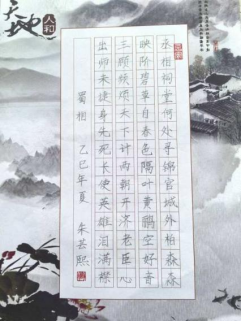 天地
人和
丞相祠堂何处寻锦官城外柏森森
映阶碧草自春色隔叶黄鹂空好音
三顾频烦天下计两朝开济老臣心
出师未捷身先死长使英雄泪满襟
蜀相 乙巳年夏 朱芸熙